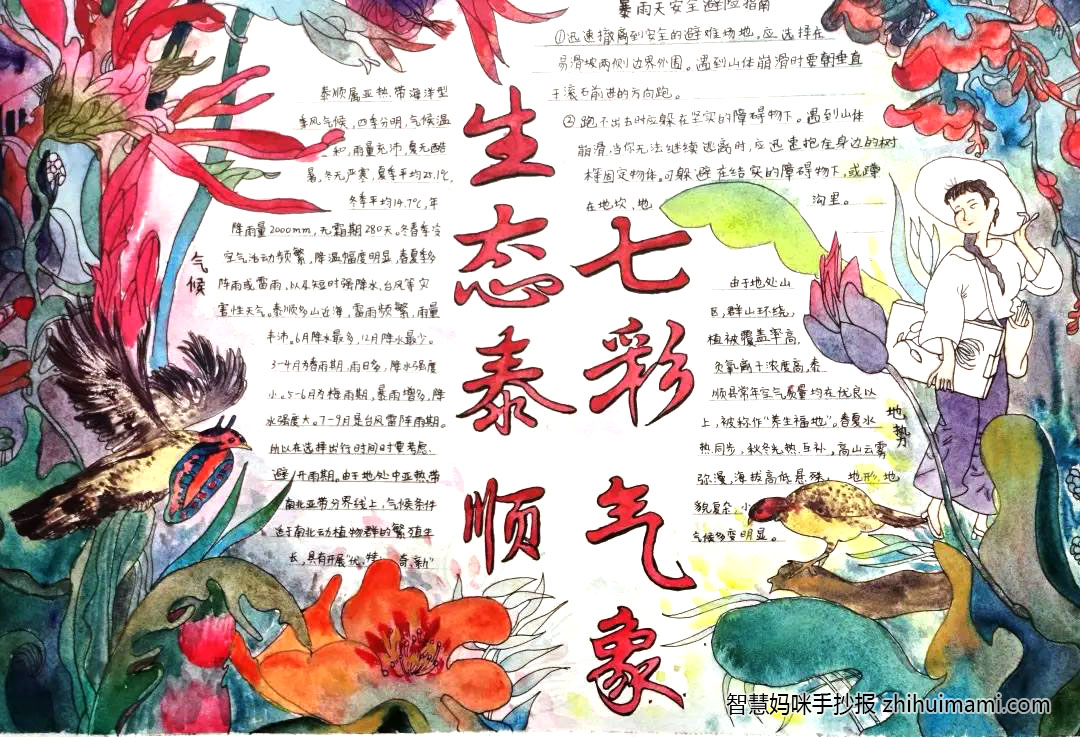 生态泰顺
七彩气象
气候
泰顺属亚热带海洋型
季风气候，四季分明，气候温
和，雨量充沛，夏无酷
暑，冬无严寒，夏季平均25.1℃，
冬季平均14.7℃，年
降雨量2000mm，无霜期280天。冬春季冷
空气活动频繁，降温幅度明显，春夏季多
阵雨或雷雨，以及短时强降水、台风等灾
害性天气。泰顺多山近海，雷雨频繁，雨量
丰沛。6月降水最多，12月降水最少。
3-4月为春雨期，雨日多，降水强度
小。5-6月为梅雨期，暴雨增多，降
水强度大。7-9月是台风雷阵雨期。
所以在选择出行时间时要考虑
避开雨期。由于地处中亚热带
南北亚带分界线上，气候条件
适于南北动植物群的繁殖生
长，具有开展"优、特、奇、新"
暴雨天安全避险指南
①迅速撤离到安全的避难场地，应选择在
易滑坡两侧边界外围。遇到山体崩滑时要朝垂直
于滚石前进的方向跑。
②跑不出去时应躲在坚实的障碍物下。遇到山体
崩滑，当你无法继续逃离时，应迅速抱住身边的树
木等固定物体。可躲避在结实的障碍物下，或蹲
在地坎、地
沟里。
地势
由于地处山
区，群山环绕，
植被覆盖率高，
负氧离子浓度高，泰
顺县常年空气质量均在优良以
上，被称作"养生福地"。春夏水
热同步，秋冬光热互补，高山云雾
弥漫，海拔高低悬殊，地形、地
貌复杂，小
气候多变明显。
智慧妈咪手抄报 zhihuimami.com